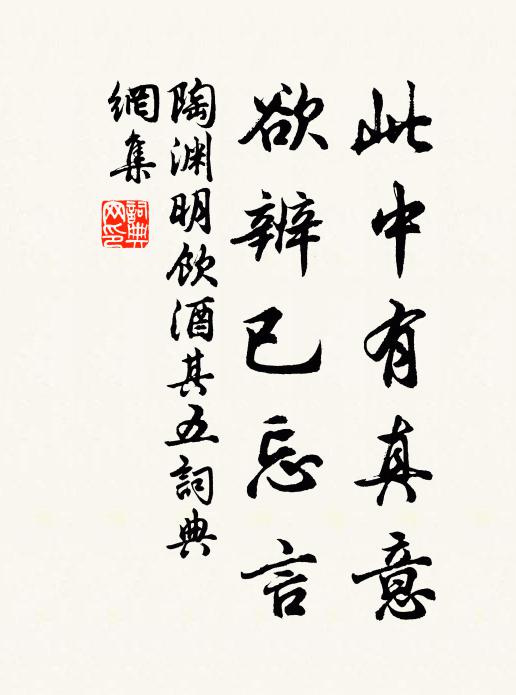 此中有真意
欲辨已忘言
陶渊明饮酒其五詞典
網集
詞典網印